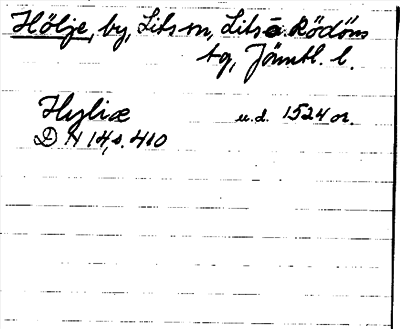 Hölje, by, Lits sn, Lits o. Rödöns
tg, Jämtl. l.
Hyliæ u.d. 1524 or.
DN 14, s. 410